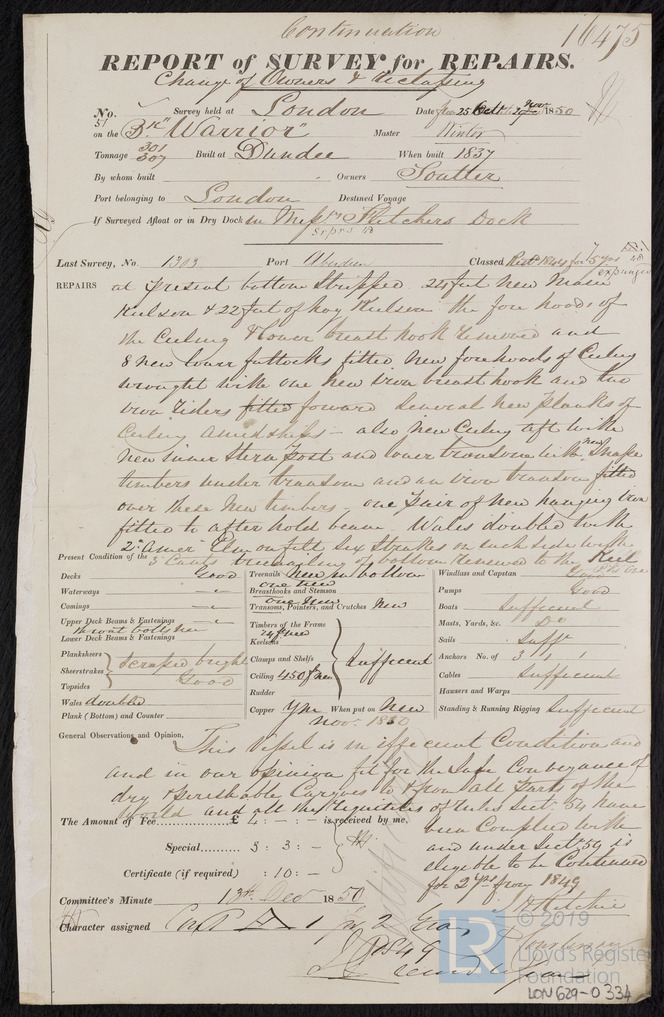 Continuation
16475
REPORT of SURVEY for REPAIRS.
Change of Owners & Reclassing
No. 51 Survey held at London Date from 25 Octr to 29 Nov 1850
on the Bk "Warrior" Master Winlo
Tonnage 301 307 Built at Dundee When built 1837
By whom built Owners Soutter
Port belonging to London Destined Voyage
If Surveyed Afloat or in Dry Dock in Messrs Fletchers Dock
Last Survey, No. 1303 Port Aberdeen Classed Rest. 1844 for 5 yrs
expunged
REPAIRS at present bottom Stripped 24 feet new Main
Kielson & 22 feet of hog Kielson the fore hoods of
the Ceiling & lower breast hook removed and
8 new lower futtocks fitted New forehoods of Ceiling
wrought with one new iron breasthook and two
iron riders fitted forward Several new planks of
Ceiling amidships – also New Ceiling aft with
new inner Stern post and lower transom with new Shape
timbers under transom and an iron transom fitted
over these New timbers, one pair of new hanging iron
fitted to after hold beam. Wales doubled with
2 in Amer Elm on felt six strakes on each side with
Present Condition of the
3 Coats treenailing of bottom renewed to the Keel
Decks Good
Waterways
Comings
Upper Deck Beams & Fastenings
Lower Deck Beams & Fastenings
Planksheers
Sheerstrakes
Topsides
scraped bright
Good
Wales doubled
Plank (Bottom) and Counter
Treenails New in bottom
one new
Breasthooks and Stemson
one New
Transoms, Pointers, and Crutches New
Timbers of the Frame
24 ft new
Keelsons
Clamps and Shelfs
Ceiling 450 ft new
Rudder
Sufficient
Copper YM When put on New
Novr. 1850
Windlass and Capstan Good
Pumps Good
Boats Sufficient
Masts, Yards, &c. Do
Sails Sufft
Anchors No. of 3
Cables Sufficient
Hawsers and Warps
Standing & Running Rigging Sufficient
General Observations and Opinion, This Vessel is in efficient Condition and
and in our opinion fit for the Safe Conveyance of
dry & perishable Cargoes to & from all parts of the
World and all the requisites of rules Sect. 54 have
been Complied with
and under Sect. 59 is
eligible to be Continued
for 2 yrs from 1849
The Amount of Fee £ 4 : - : - is received by me,
Special 3 : 3 : -
Certificate (if required) : 10 : -
Committee's Minute 13th Decr 1850
Character assigned Cont 1 for 2 Years
1849
J H Ritchie
LR
© 2019
Lloyd's Register
Foundation
LON629-0334